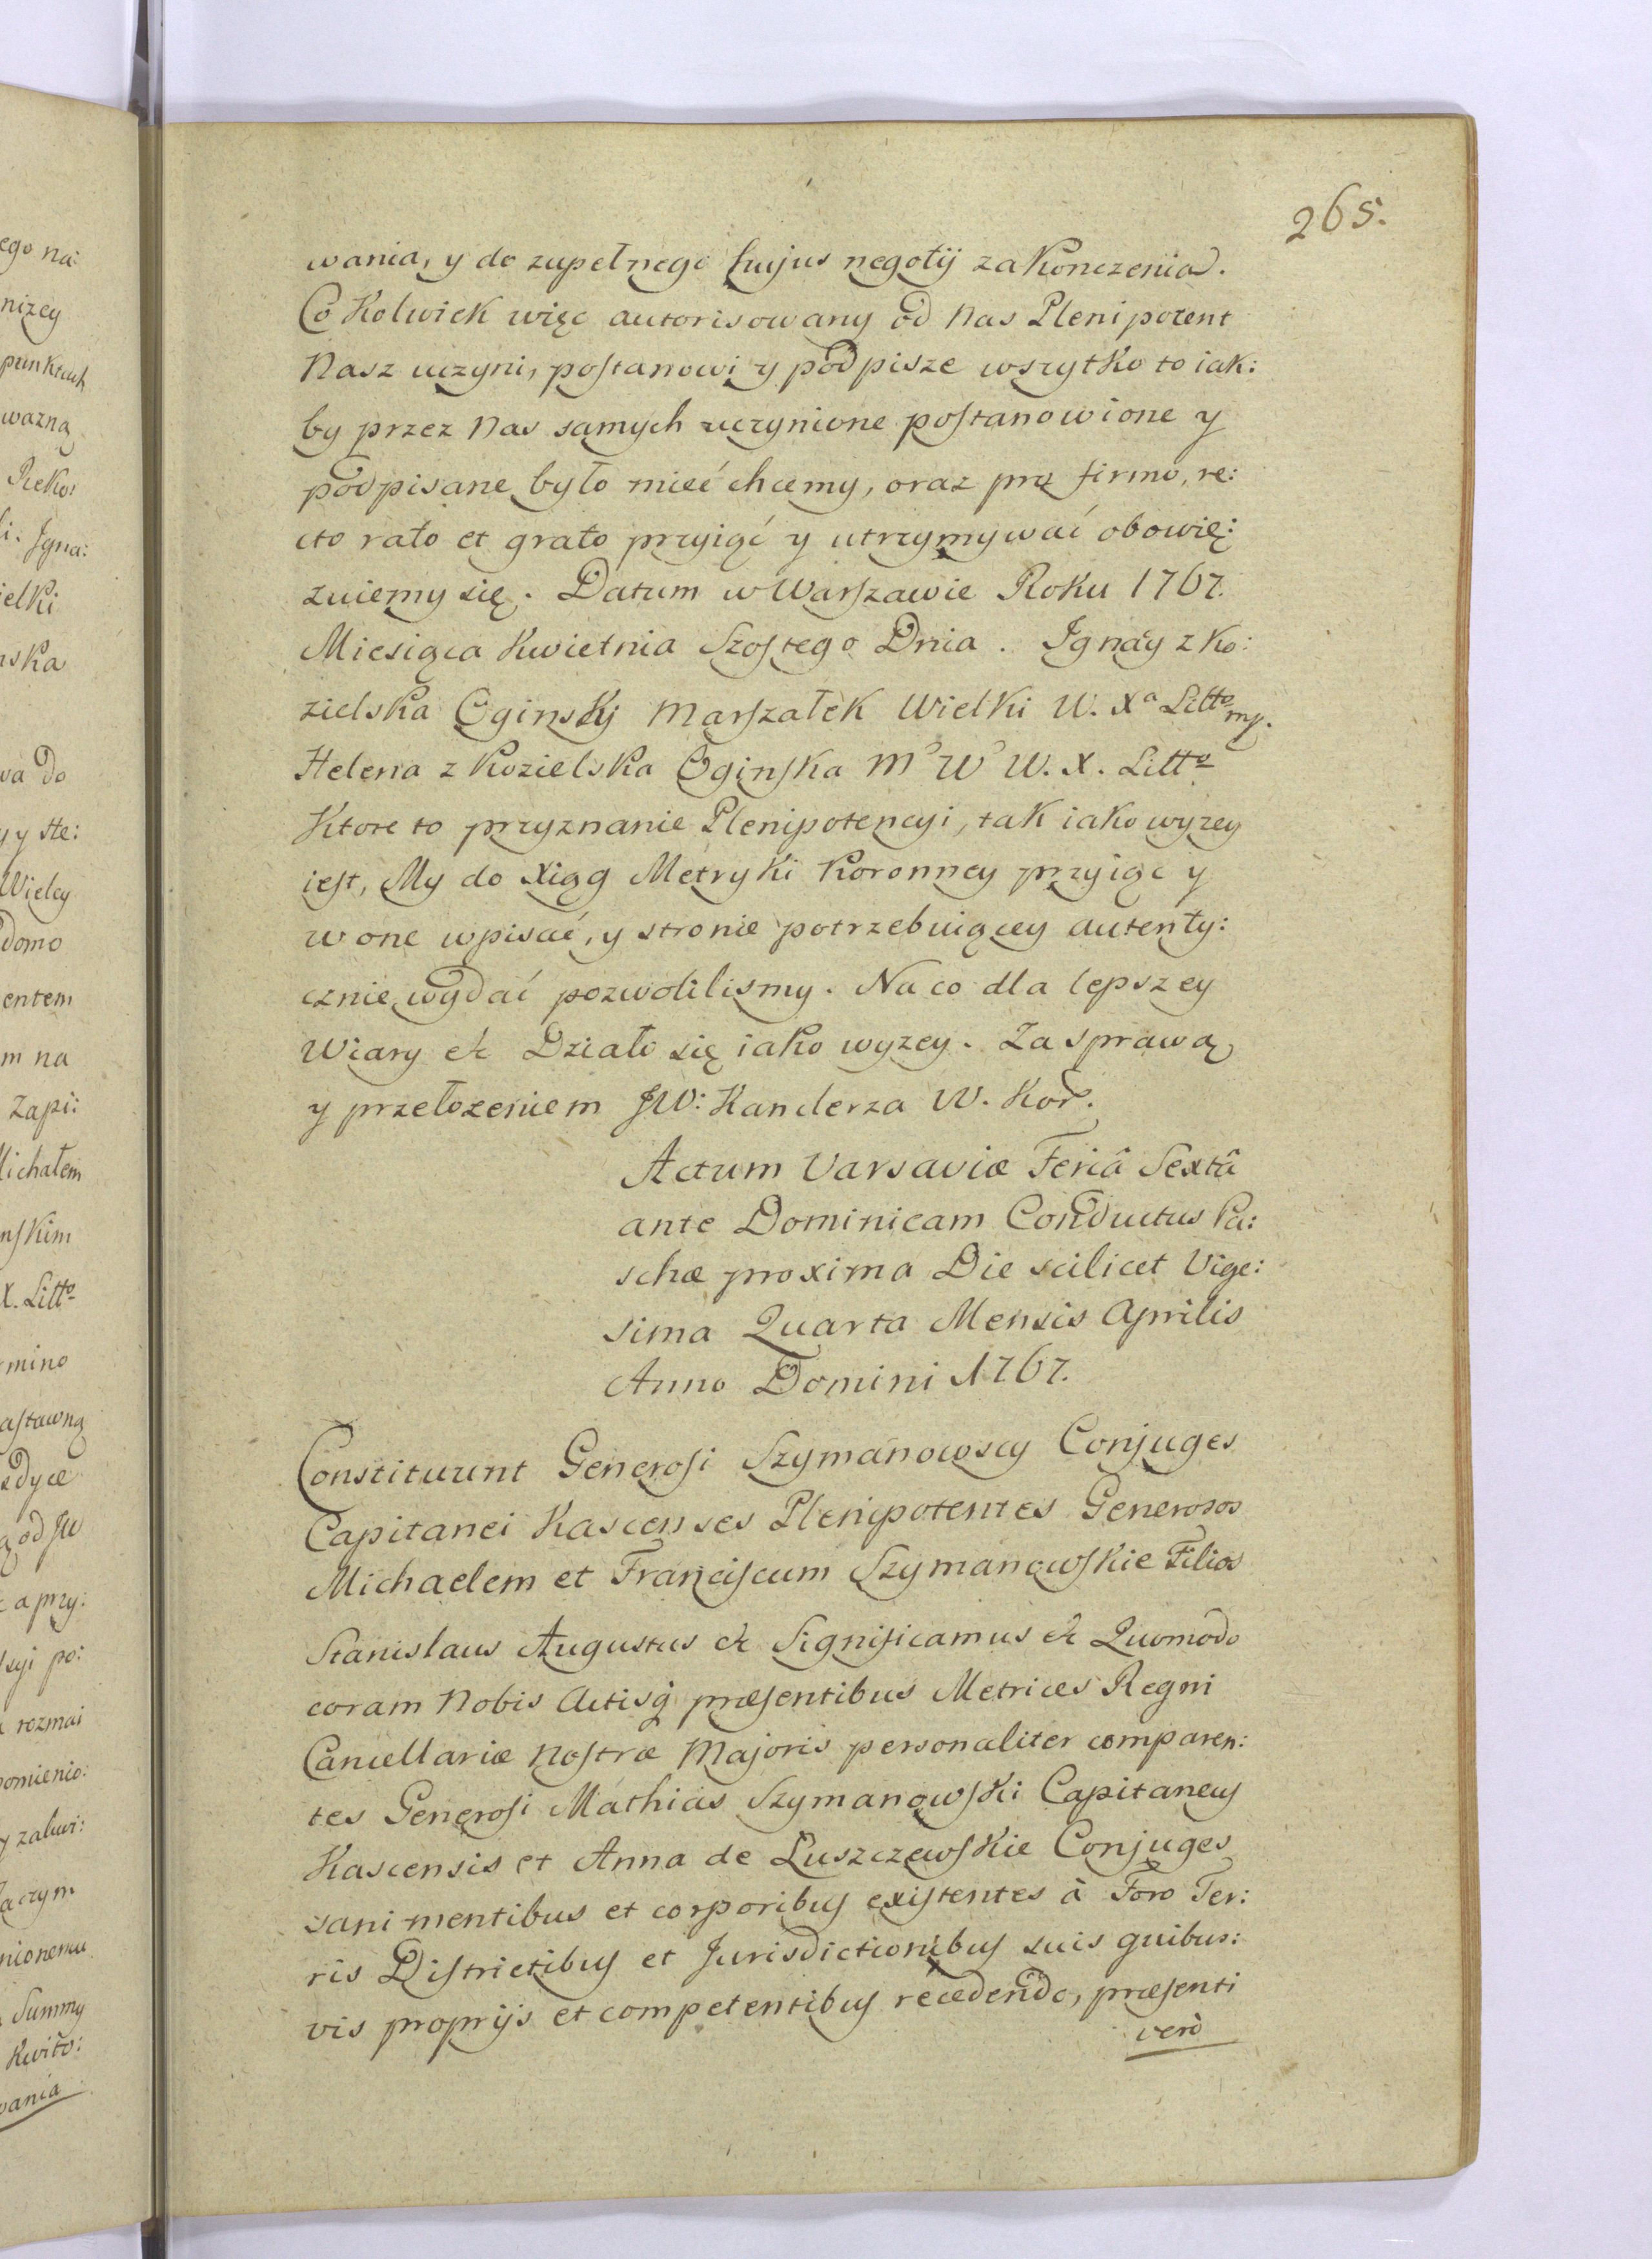 265.
wania, y do zupełnego hujus negotij zakonczenia.
Co kolwiek więc autorisowany od Nas Plenipotent
Nasz uczyni, postanowi y podpisze wszytko to iak:
by przez Nas samych uczynione postanowione y
podpisane było mieć chcemy, oraz pro firmo, re:
cto rato et grato przyiąć y utrzymywać obowię:
zuiemy się. Datum w Warszawie Roku 1767.
Miesiąca Kwietnia Szostego Dnia. Ignacy z Ko:
zielska Oginsky Marszałek Wielki W. Xa Litto mp.
Helena z Kozielska Oginska M W W. X. Litto
Ktore to przyznanie Plenipotencyi, tak iako wyzey
iest, My do Xiąg Metryki Koronney przyiąć y
w one wpisać, y stronie potrzebuiącey autenty:
cznie wydać pozwolilismy. Na co dla lepszey
Wiary etc Działo się iako wyzey. Za sprawą
y przełozeniem JW: Kanclerza W. Kor.
Actum Varsaviæ Feriâ Sextâ
ante Dominicam Conductus Pa:
schæ proxima Die scilicet Vige:
sima Quarta Mensis Aprilis
Anno Domini 1767.
Constituunt Generosi Szymanowscy Conjuges
Capitanei Kascenses Plenipotentes Generosos
Michaelem et Franciscum Szymanowskie Filios
Stanislaus Augustus etc Significamus etc Quomodo
coram Nobis Actisq præsentibus Metrices Regni
Cancellariæ Nostræ Majoris personaliter comparen:
tes Generosi Mathias Szymanowski Capitaneus
Kascensis et Anna de Luszczewskie Conjuges
sani mentibus et corporibus existentes à Foro Ter:
ris Districtibus et Jurisdictionibus suis quibus:
vis proprijs et competentibus recedendo, præsenti
verò